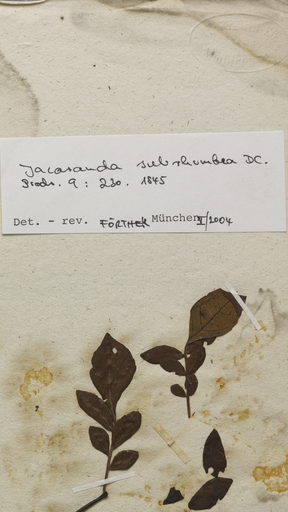 Jacaranda subrhombea DC.
Prodr. 9: 230. 1845
Det. - rev. FÖRTHER München X/2004